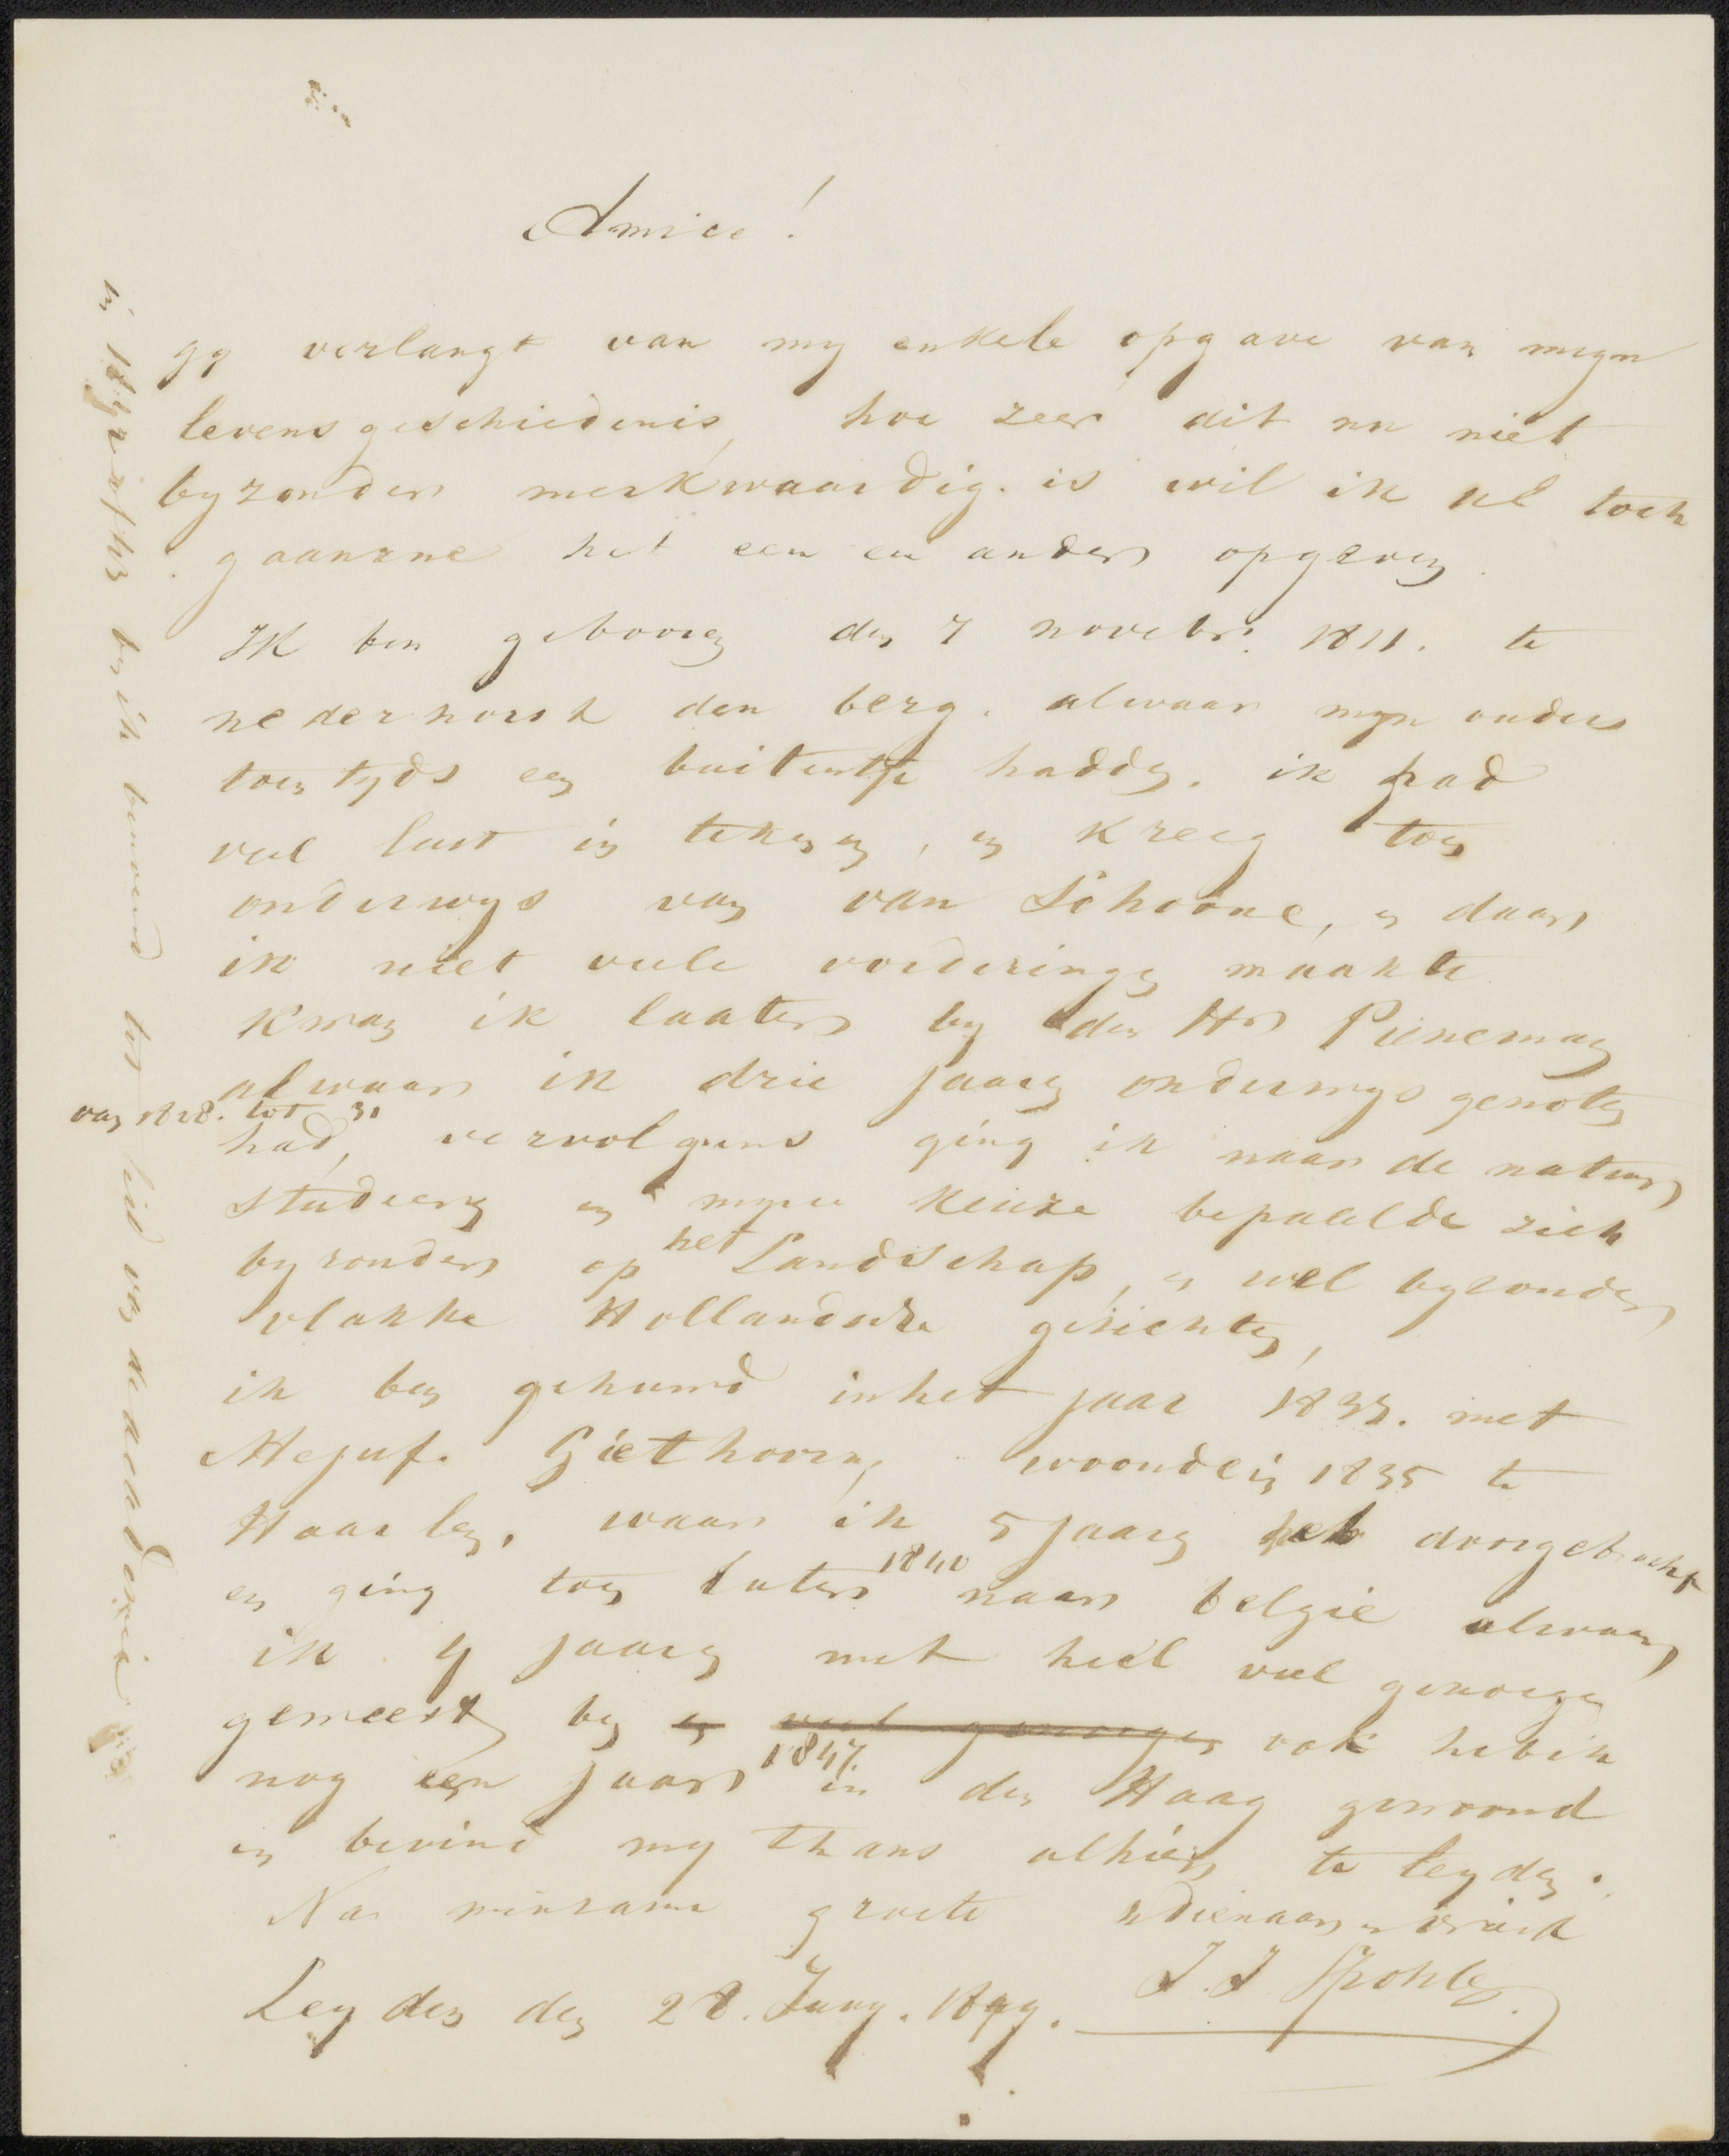 Amice!
gy verlangt van my enkele opgave van mijn
levensgeschiedenis, hoe zeer dit nu niet
byzonder merkwaardig. is wil ik ul toch
gaanrne het een en ander opgeven.
Ik ben gebooren den 7 novebr. 1811. te
nederhorst den berg. alwaar myn ouders
toen tyds een buitentje hadden. ik had
veel lust in tekenen, en kreeg toen
onderwys van van Schoone, en daar
ik niet veele vorderingen maakte
kwam ik laater by den Hr Pieneman
alwaar ik drie jaaren onderwys genoten
van 1828. tot 31
had, vervolgens ging ik naar de natuur
studeeren en myne keuze bepaalde zich
byzonder op het Landschap, en wel byzonder
vlakke Hollandsche gezichten,
ik ben gehuwd in het jaar 1833. met
Mejuf. Giethoorn, woonde in 1835 te
Haarlem, waar ik 5 jaaren heb doorgebracht
en ging toen later 1840 naar belgie alwaar
ik jaaren met heel veel genoegen
geweest ben en veel genoegen ook heb ik
nog een jaar 1847. in den Haag gewoond
en bevind my thans alhier te leyden.
Na minzame groete udienaar en vriend
J.J. Spohler
Leyden den 28. Juny. 1849.
ben ik benoemd tot lid van de academie